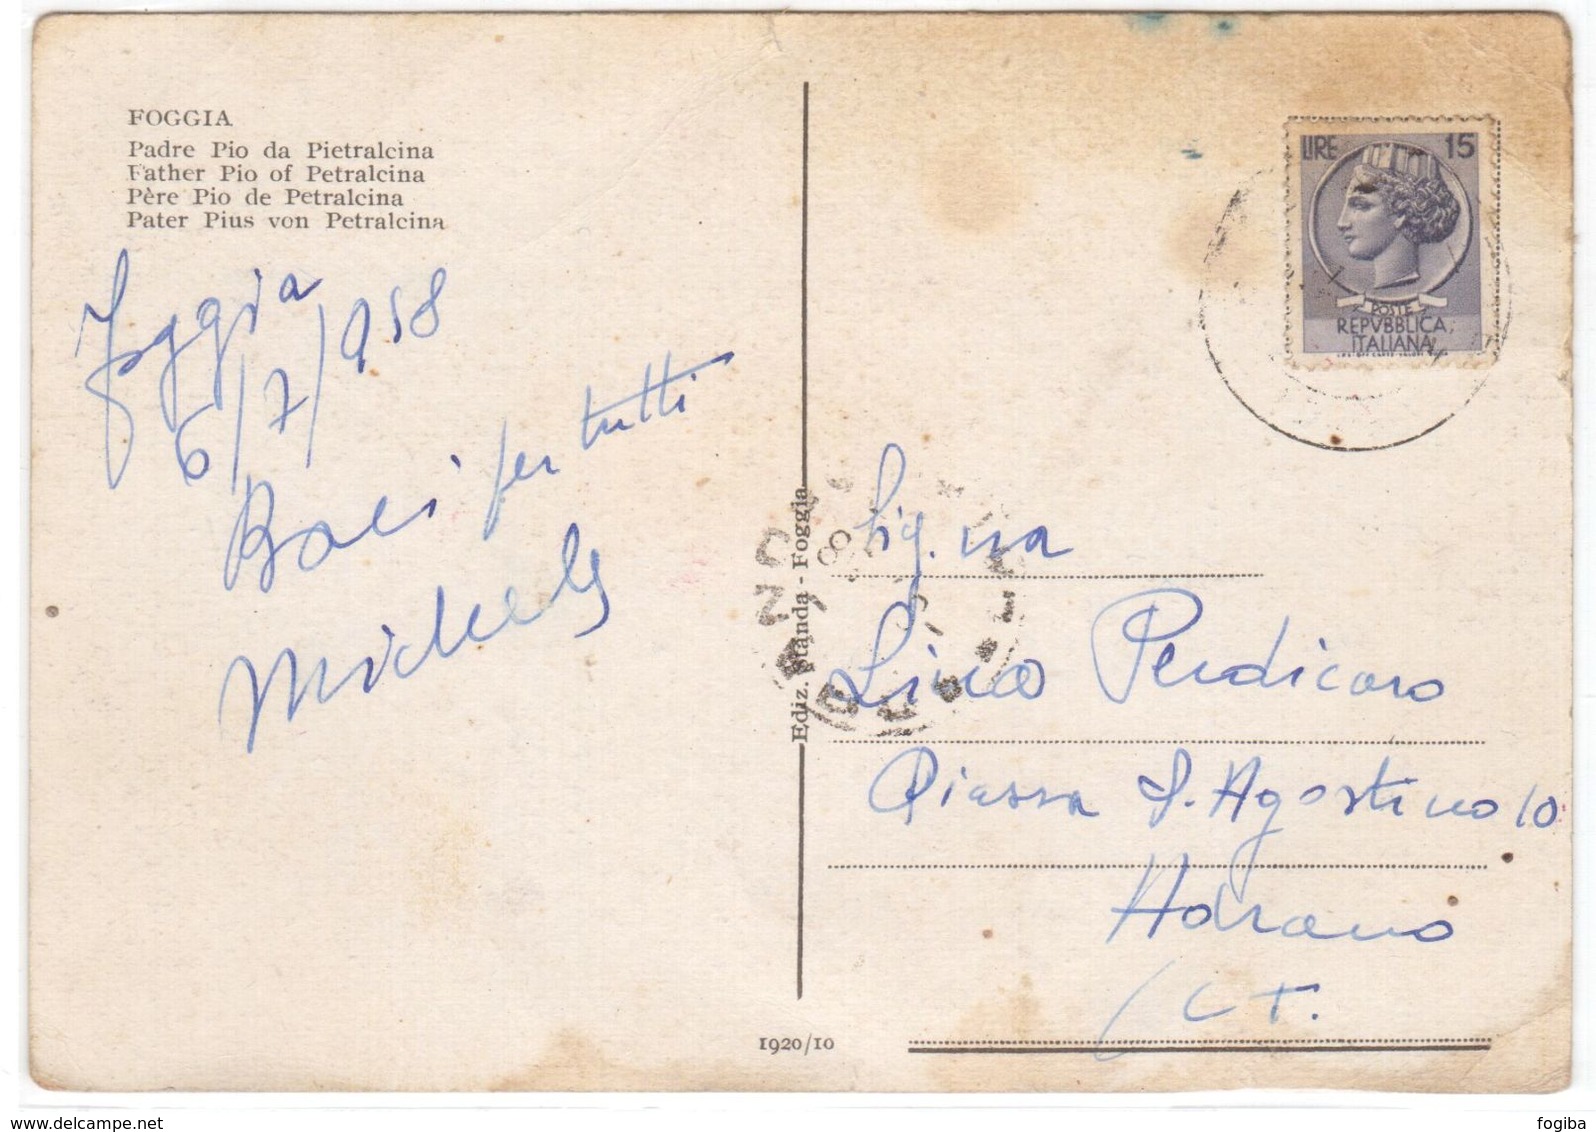 FOGGIA
Padre Pio da Pietralcina
Father Pio of Petralcina
Père Pio de Petralcina
Pater Pius von Petralcina
Foggia
6/7/1958
Baci per tutti
Michele
Ediz. Standa - Foggia
1920/10
LIRE 15
POSTE
REPVBBLICA
ITALIANA
Sig.na
Lina Perdicaro
Piazza S. Agostino 10
Adrano
(CT.
www.delcampe.net
fogiba